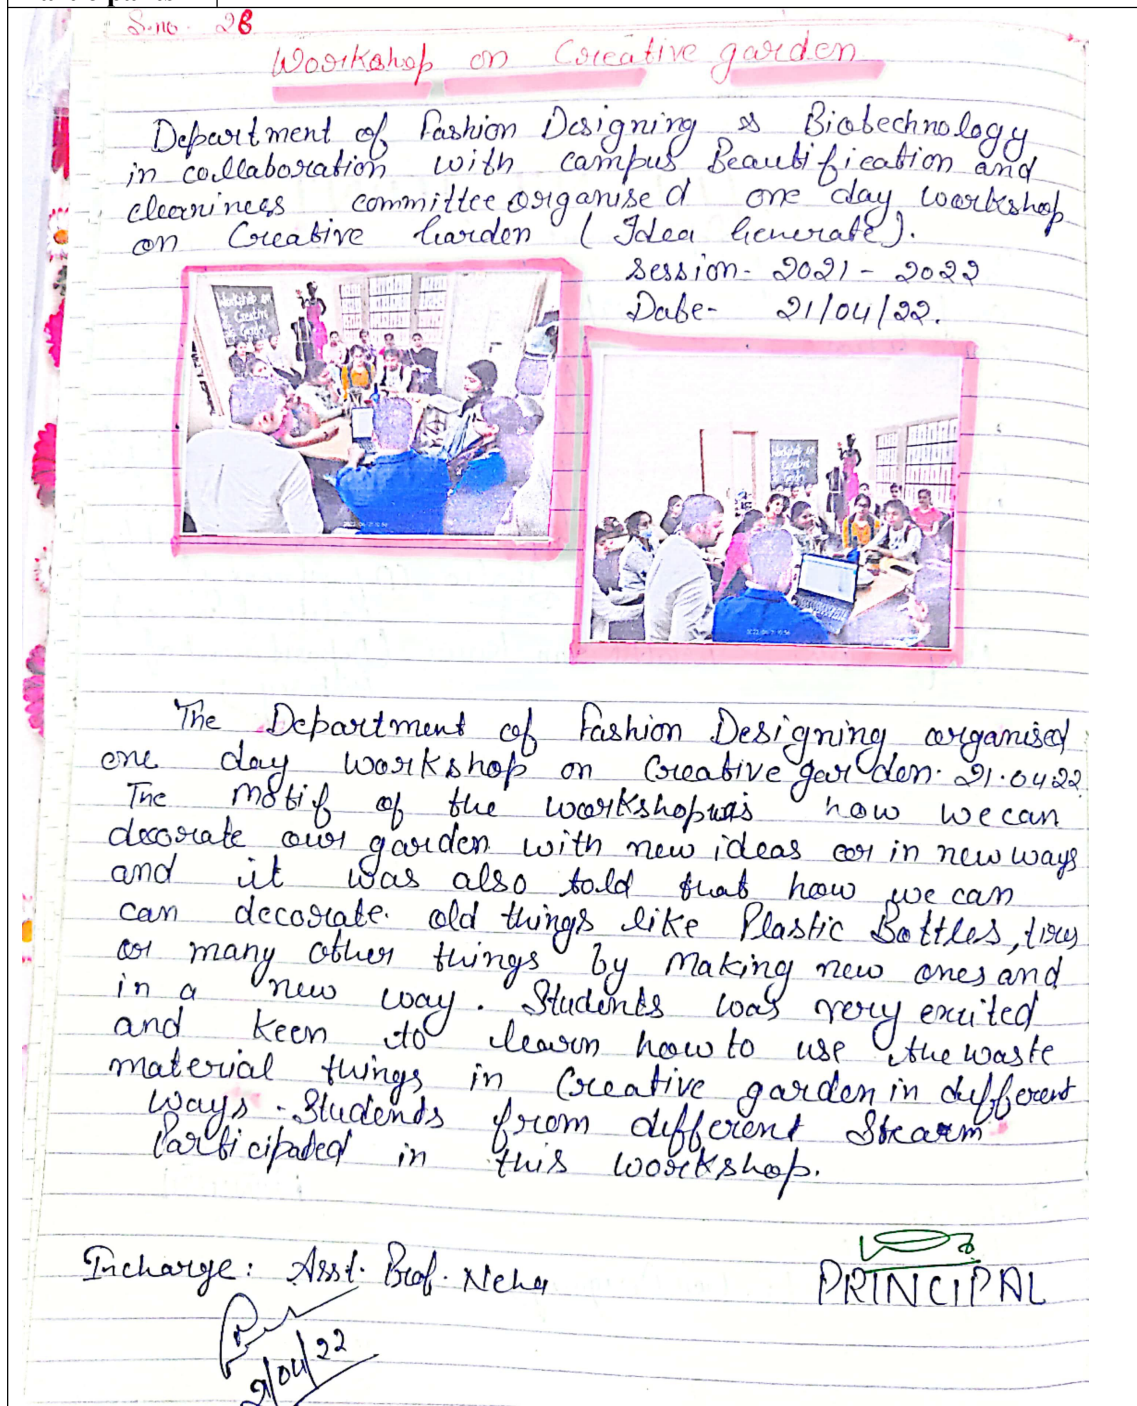 S.no. 26
Workshop on Creative garden
Department of Fashion Designing & Biotechnology
in collaboration with campus Beautification and
cleaniness committee organised one day workshop
on Creative Garden (Idea Generate).
Session- 2021-2022
Date- 21/04/22.
Workshop on
Creative
Garden
Workshop on
Creative
Garden
The Department of Fashion Designing organised
one day workshop on Creative garden. 21.0422
The motif of the workshop was how we can
decorate our garden with new ideas or in new ways
and it was also told that how we can
can decorate. old things like Plastic Bottles, tires
or many other things by making new ones and
in a new way. Students was very excited
and keen to learn how to use the waste
material things in Creative garden in different
ways. Students from different Stearm
Participated in this workshop.
Incharge: Asst. Prof. Neha
PRINCIPAL
21/04/22